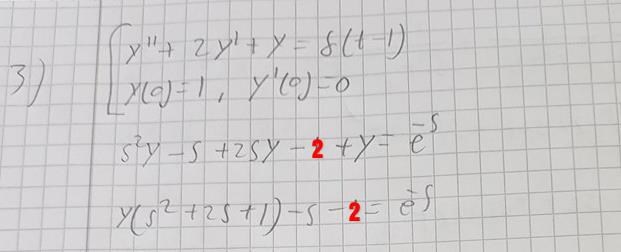 3) y'' + 2y' + y = δ(t-1)
y(0) = 1, y'(0) = 0
s²y - s + 2sy - 2 + y = e^-s
y(s² + 2s + 1) - s - 2 = e^-s